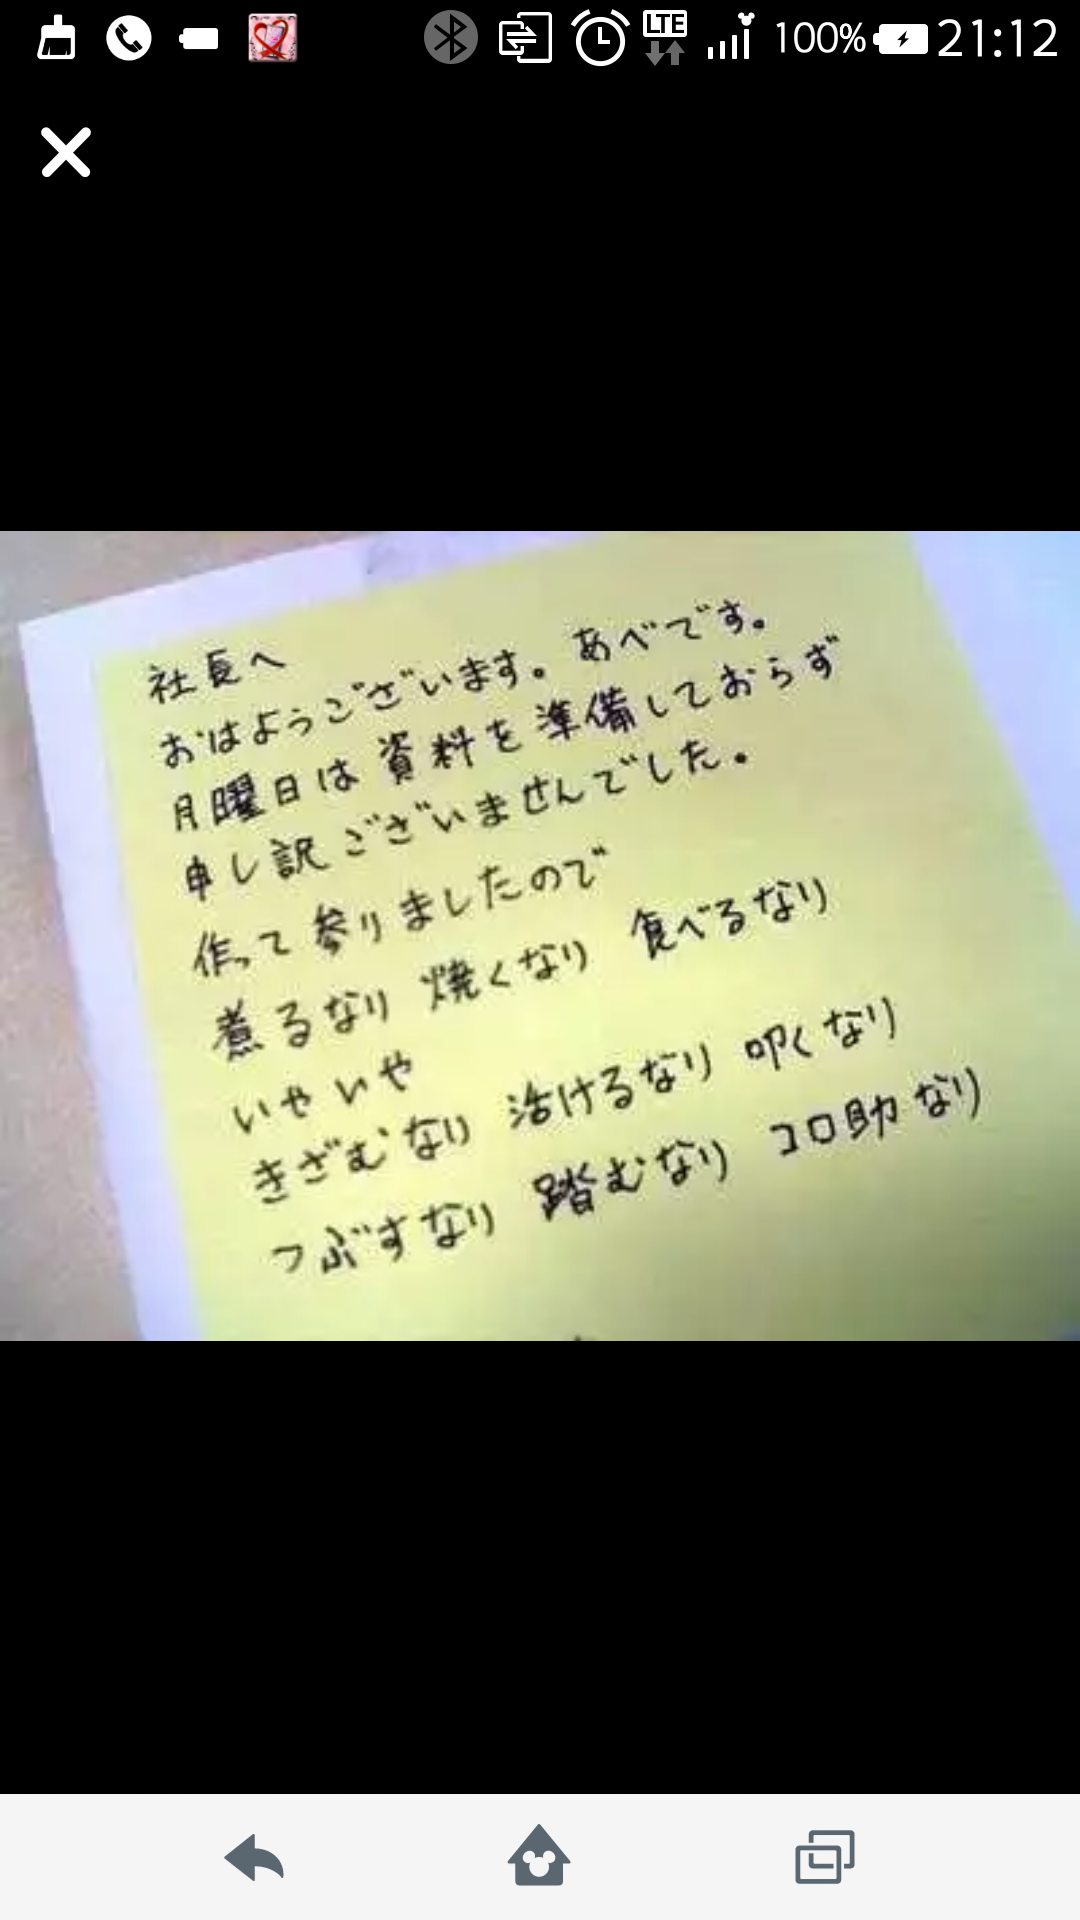 LTE
100%
21:12
社長へ
おはようございます。あべです。
月曜日は資料を準備しておらず
申し訳ございませんでした。
作って参りましたので
煮るなり 焼くなり 食べるなり
いや いや
きざむなり 活けるなり 叩くなり
つぶすなり 踏むなり コロ助なり